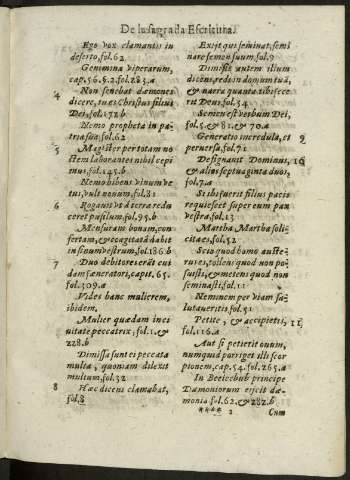 De la sagrada Escritura.
Ego vox clamantis in
deserto, fol. 62.
Genimina viperarum,
cap. 56. §. 2. fol. 283. a
4 Non sinebat dæmones
dicere, tu es Christus filius
Dei, fol. 172. b
Nemo propheta in pa-
tria sua fol. 62
5 Magister per totam no
ctem laborantes nihil cepi
mus, fol. 245. b
Nemo bibens vinum ve
tus, vult novum, fol. 81
6 Rogavit vt à terra redu
ceret pusilum, fol. 95. b
Mensuram bonam, con
fertam, & coagitatã dabit
in sinum vestrum, fol. 186. b
7 Duo debitores erãt cui
dam fæneratori, capit. 65.
fol. 309. a
Vides hanc mulierem,
ibidem.
Mulier quædam in ci
uitate peccatrix, fol. 1. &
228. b
Dimissa sunt ei peccata
multa, quoniam dilexit
multum, fol. 32
8 Hæc dicens clamabat,
fol. 8
Exijt qui seminat, semi
nare semen suum, fol. 9
Dimisit autem illum
dicẽs, redi in domum tuã,
& narra quanta tibi fece
rit Deus, fol. 54
Semen est verbum Dei,
fol. 5. & 81. & 70. a
Generatio incredula, et 9
perversa, fol. 71
Designauit Dominus, 10
& alios septuaginta duos,
fol. 7. a
Si ibi fuerit filius pacis
requiescet super eum pax
vestra, fol. 13
Martha, Martha soli-
cita es, fol. 52
Scis quod homo auste-
rus es, tollens quod non po
suisti, & metens quod non
seminasti, fol. 11
Neminem per viam sa-
lutaueritis, fol. 51
Petite, & accipietis, 11
fol. 116. a
Aut si petierit ouum,
numquid poriget illi scor
pionem, cap. 54. fol. 265. a
In Beelcebub principe
Dæmoniorum eijcit dæ-
monia fol. 62. & 282. b
**** 2 Cum